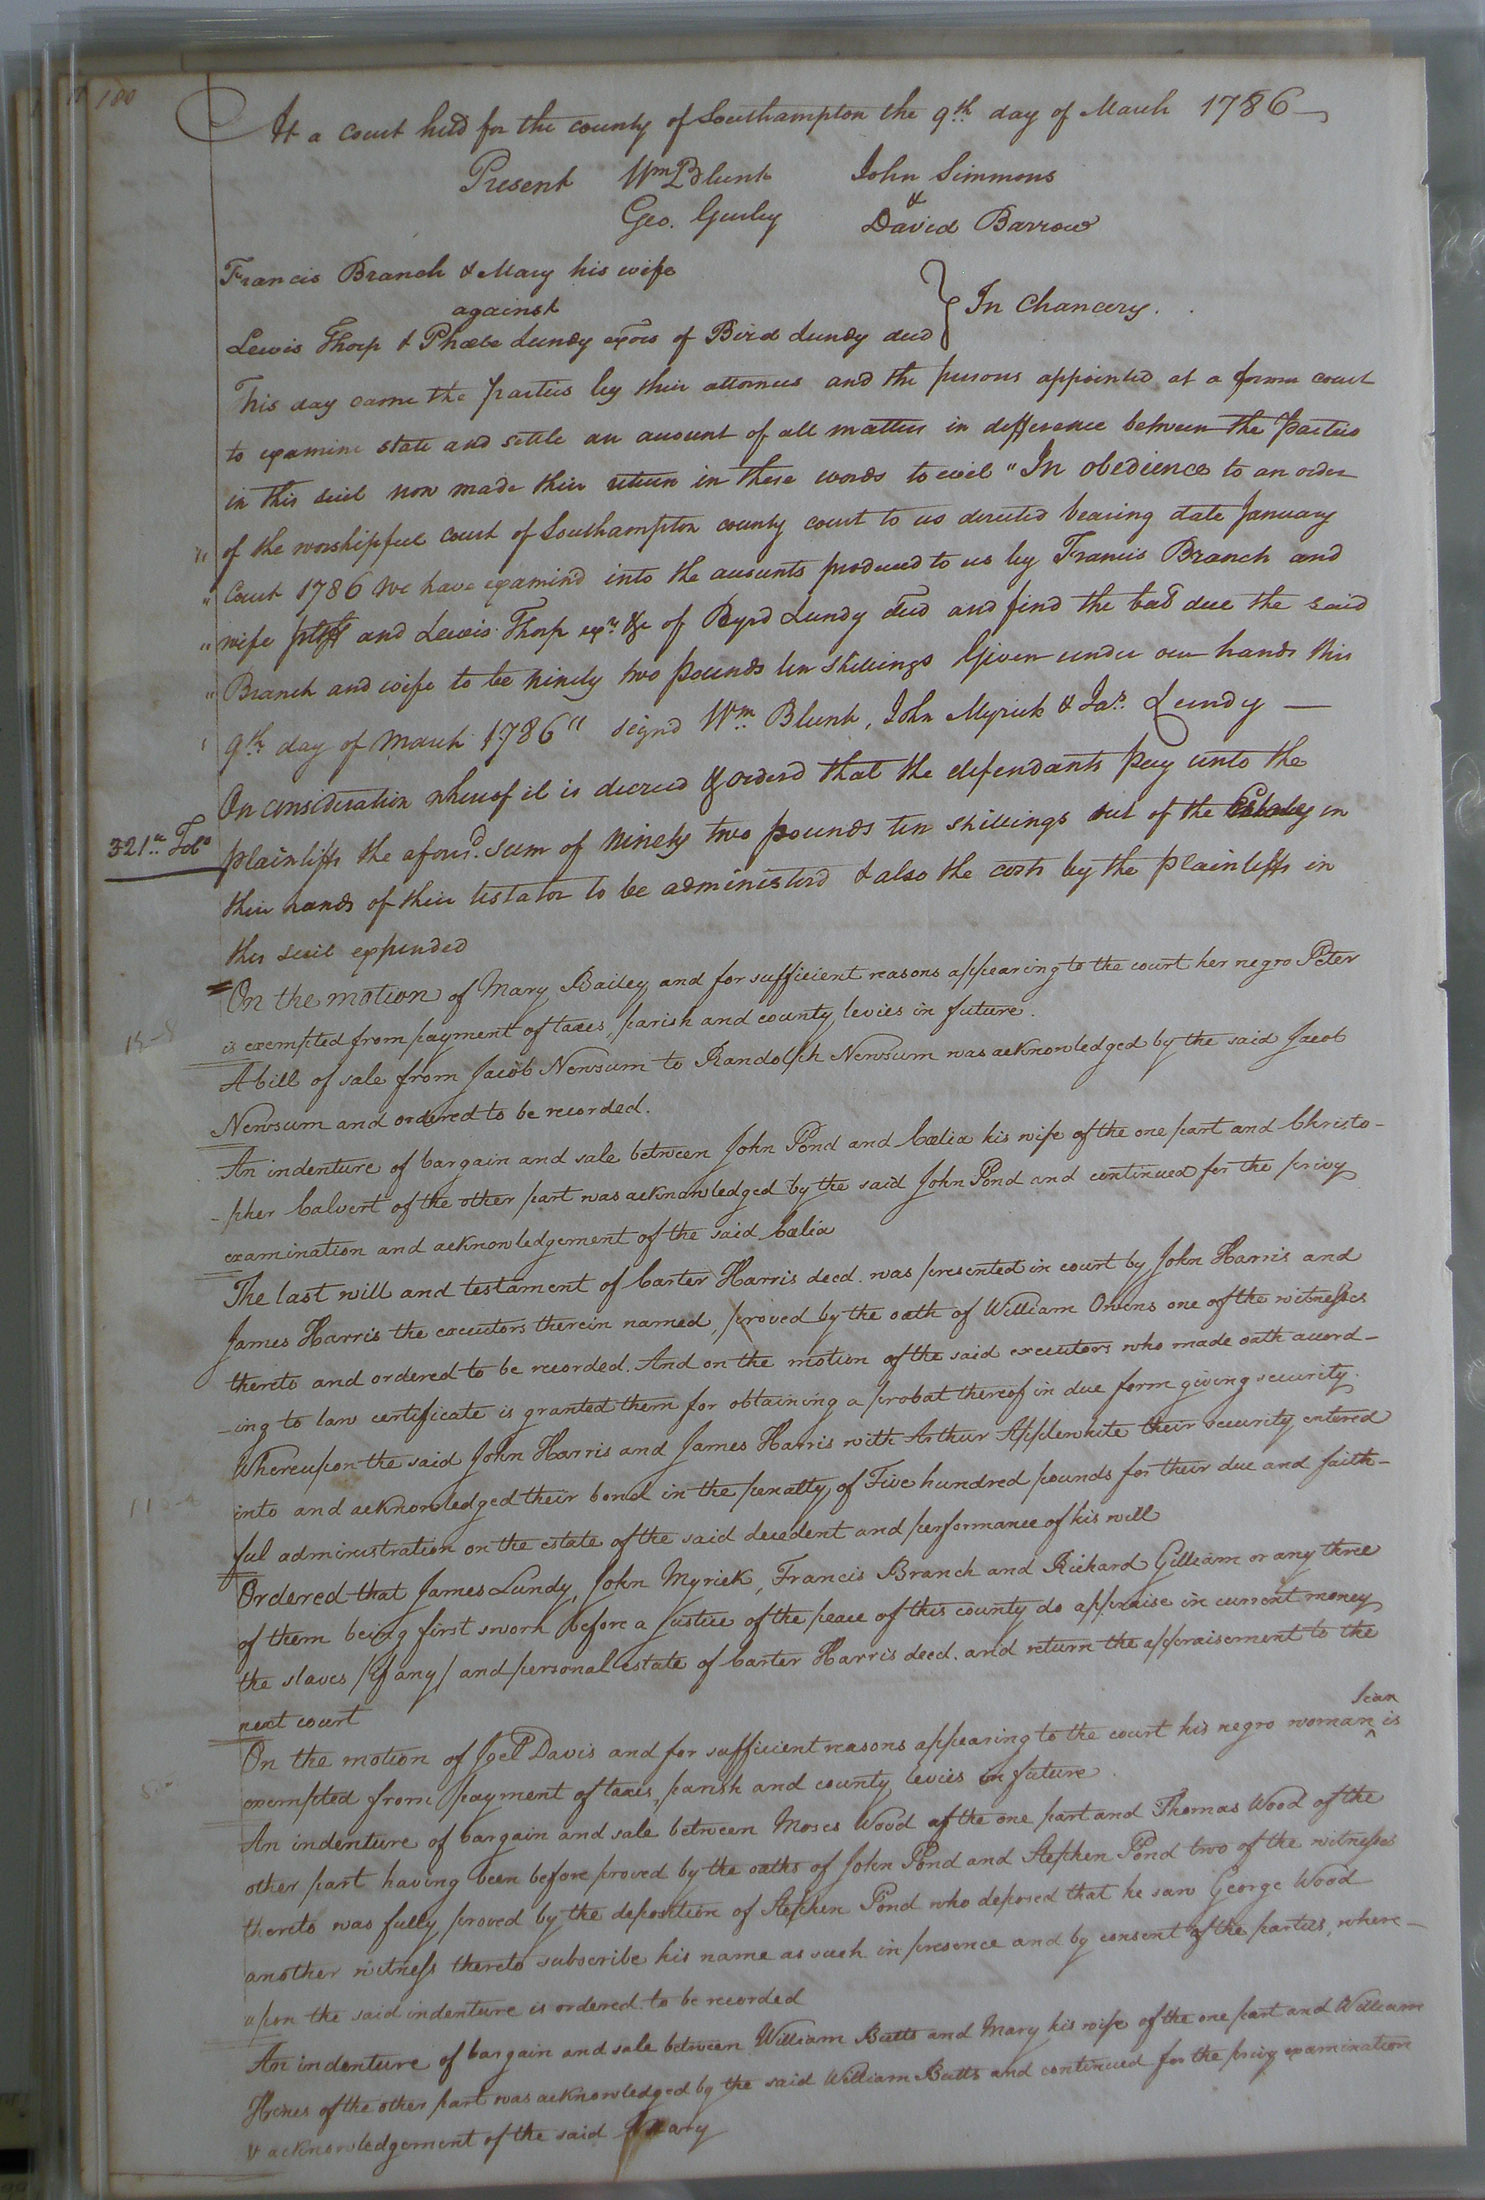 180
At a court held for the county of Southampton the 9th day of March 1786
Present Wm Blunt John Simmons
&
Geo. Gurley David Barrow
Francis Branch & Mary his wife
against
In Chancery.
Lewis Thorp & Phœbe Lundy exors of Bird Lundy decd
This day came the parties by their attornies and the persons appointed at a former court
to examine state and settle an account of all matters in difference between the Parties
in this suit now made their return in these words to wit "In obedience to an order
" of the worshipful court of Southampton county court to us directed bearing date January
" Court 1786 We have examind into the accounts produced to us by Francis Branch and
" wife pltffs and Lewis Thorp exr &c of Byrd Lundy decd and find the bal due the said
" Branch and wife to be Ninety two pounds ten shillings Given under our hands this
' 9th day of March 1786" signd Wm Blunt, John Myrick & Jas. Lundy —
On consideration whereof it is decreed & orderd that the defendants pay unto the
321st Folo
plaintiffs the aforsd. sum of Ninety two pounds ten shillings out of the in
their hands of their testator to be administerd & also the costs by the plaintiffs in
this suit expended
On the motion of Mary Bailey and for sufficient reasons appearing to the court her negro Peter
is exempted from payment of taxes, parish and county levies in future.
A bill of sale from Jacob Newsum to Randolph Newsum was acknowledged by the said Jacob
Newsum and ordered to be recorded.
An indenture of bargain and sale between John Pond and Cœlia his wife of the one part and Christo-
-pher Calvert of the other part was acknowledged by the said John Pond and continued for the privy
examination and acknowledgement of the said Cœlia
The last will and testament of Carter Harris decd. was presented in court by John Harris and
James Harris the executors therein named, proved by the oath of William Owens one of the witnesses
thereto and ordered to be recorded. And on the motion of the said executors who made oath accord-
-ing to law certificate is granted them for obtaining a probat thereof in due form giving security.
Whereupon the said John Harris and James Harris with Arthur Applewhite their security entered
into and acknowledged their bond in the penalty of Five hundred pounds for their due and faith-
ful administration on the estate of the said decedent and performance of his will
Ordered that James Lundy, John Myrick, Francis Branch and Richard Gilliam or any three
of them being first sworn before a Justice of the peace of this county do appraise in current money
the slaves /if any/ and personal estate of Carter Harris decd. and return the appraisement to the
next court
On the motion of Joel Davis and for sufficient reasons appearing to the court his negro woman is
exempted from payment of taxes, parish and county levies in future.
An indenture of bargain and sale between Moses Wood of the one part and Thomas Wood of the
other part having been before proved by the oaths of John Pond and Stephen Pond two of the witnesses
thereto was fully proved by the deposition of Stephen Pond who deposed that he saw George Wood
another witness thereto subscribe his name as such in presence and by consent of the parties, where-
upon the said indenture is ordered to be recorded
An indenture of bargain and sale between William Butts and Mary his wife of the one part and William
Hines of the other part was acknowledged by the said William Butts and continued for the privy examination
& acknowledgement of the said Mary